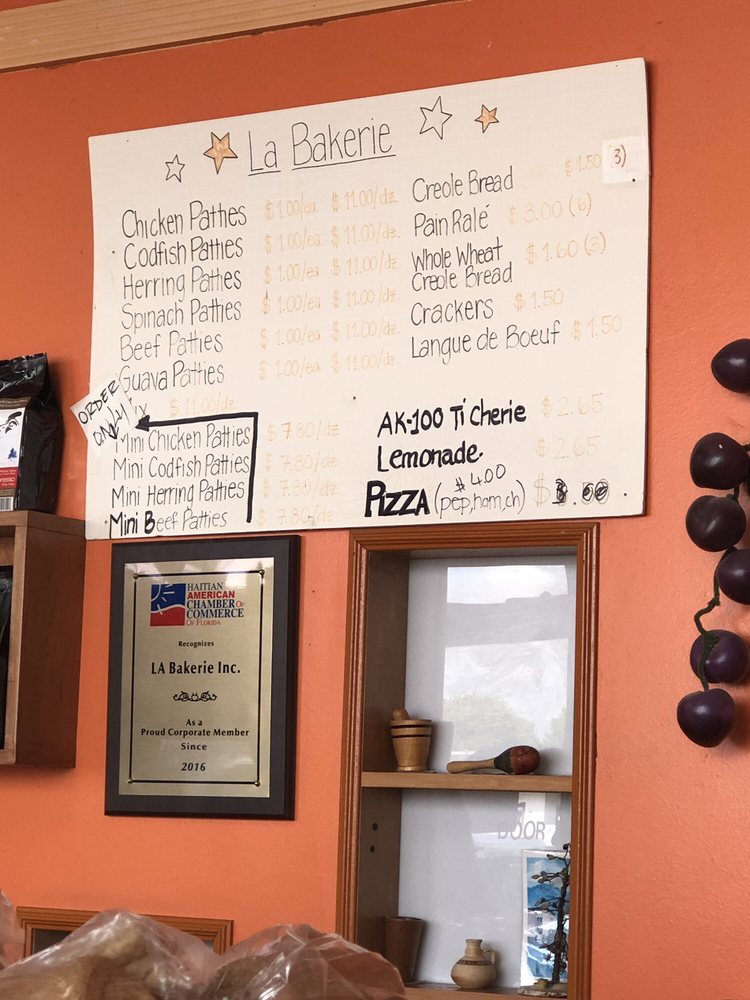 La Bakerie
Chicken Patties $1.00/ea $11.00/dz.
Codfish Patties $1.00/ea $11.00/dz.
Herring Patties $1.00/ea. $11.00/dz.
Spinach Patties $1.00/ea $11.00/dz.
Beef Patties $1.00/ea. $11.00/dz.
Guava Patties $1.00/ea. $11.00/dz.
ORDER
ONLY!
$11.00/dz.
Mini Chicken Patties $7.80/dz
Mini Codfish Patties $7.80/dz
Mini Herring Patties $7.80/dz
Mini Beef Patties $7.80/dz
Creole Bread $1.50 3)
Pain Ralé $3.00 (6)
Whole Wheat $1.60 (3)
Creole Bread
Crackers $1.50
Langue de Boeuf $1.50
AK-100 Ti Cherie $2.65
Lemonade $2.65
PIZZA (pep,ham,ch) $4.00
HAITIAN
AMERICAN
CHAMBER OF
COMMERCE
OF FLORIDA
Recognizes
LA Bakerie Inc.
As a
Proud Corporate Member
Since
2016
DOOR